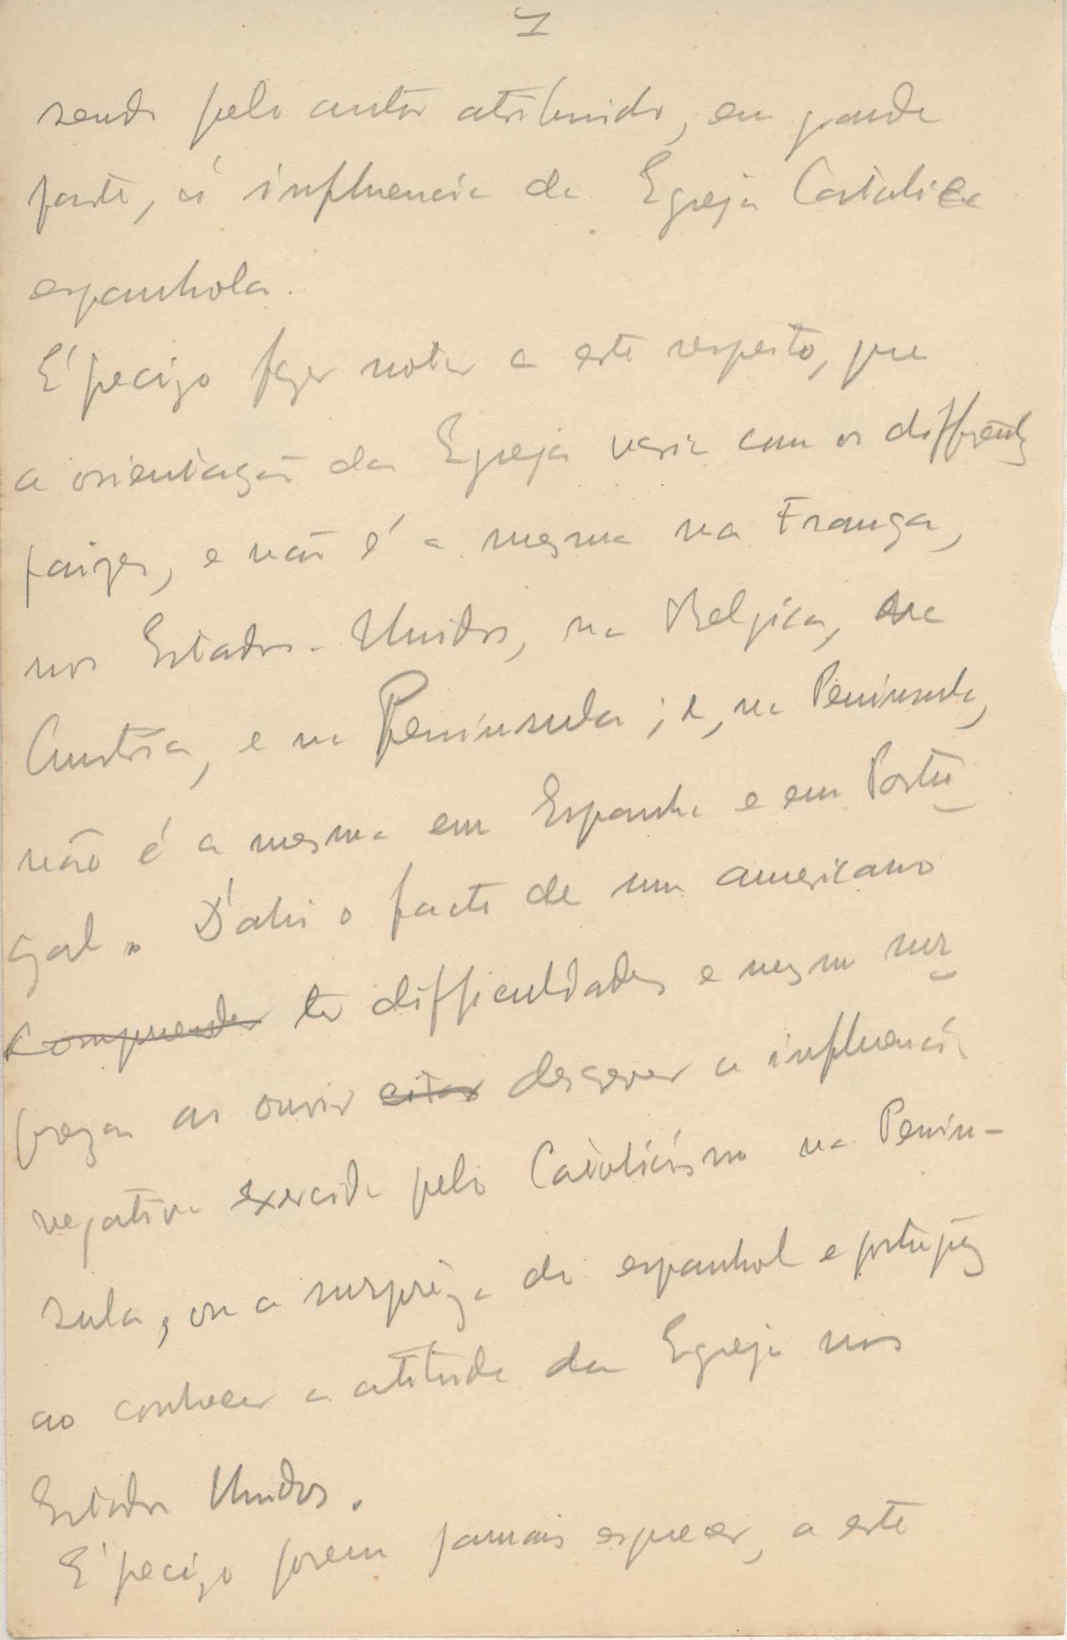 sendo pelo autor atribuido, em grande
parte, á influencia da Egreja Catolica
espanhola.
É precizo fazer notar a este respeito, que
a orientação da Egreja varia com os differentes
paizes, e não é a mesma na França,
nos Estados-Unidos, na Belgica, na
Austria, e na Peninsula; e, na Peninsula,
não é a mesma em Espanha e em Portu-
gal. D'ahi o facto de um americano
comprender ter difficuldades e mesmo sur-
preza ao ouvir citar descrever a influencia
negativa exercida pelo Catolicismo na Penin-
sula, ou a surprêza do espanhol e portuguez
ao conhecer a atitude da Egreja nos
Estados Unidos.
É precizo porem jamais esquecer, a este